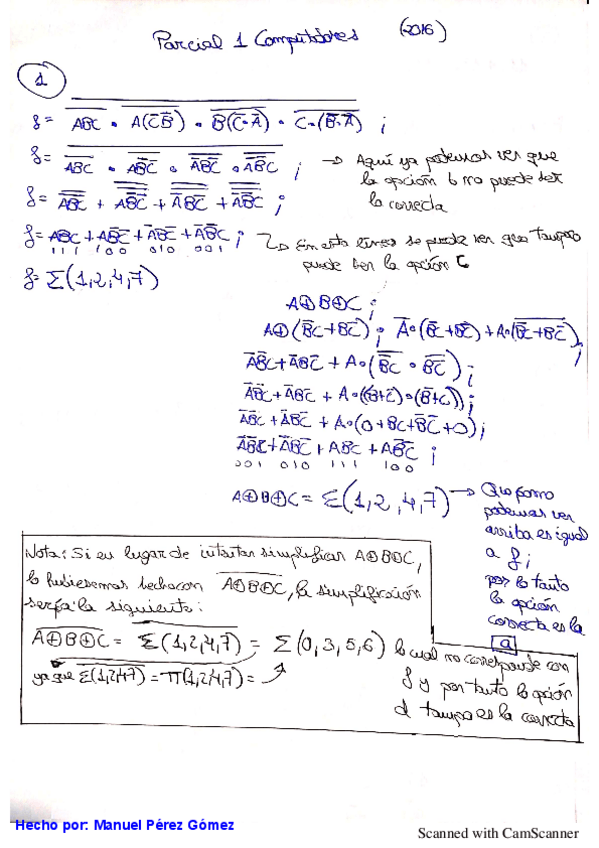 Parcial 1 Computadores (2016)
1
f = \overline{\overline{ABC} · \overline{A(\bar{C}\bar{B})} · \overline{B(\bar{C}·\bar{A})} · \overline{C·(\bar{B}·\bar{A})}} ;
f = \overline{\overline{ABC} · \overline{A\bar{B}\bar{C}} · \overline{\bar{A}B\bar{C}} · \overline{\bar{A}\bar{B}C}} ; → Aquí ya podemos ver que
la opción b no puede ser
la correcta
f = \overline{\overline{ABC}} + \overline{\overline{A\bar{B}\bar{C}}} + \overline{\overline{\bar{A}B\bar{C}}} + \overline{\overline{\bar{A}\bar{B}C}} ;
f = ABC + A\bar{B}\bar{C} + \bar{A}B\bar{C} + \bar{A}\bar{B}C ; → En esta línea se puede ver que tampoco
111 100 010 001 puede ser la opción c
f = Σ(1,2,4,7)
A⊕B⊕C ;
A⊕(\bar{B}C + B\bar{C}) ; \bar{A}·(\bar{B}C + B\bar{C}) + A·(\overline{\bar{B}C + B\bar{C}}) ;
\bar{A}\bar{B}C + \bar{A}B\bar{C} + A·(\overline{\bar{B}C} · \overline{B\bar{C}}) ;
\bar{A}\bar{B}C + \bar{A}B\bar{C} + A·((B+\bar{C})·(\bar{B}+C)) ;
\bar{A}\bar{B}C + \bar{A}B\bar{C} + A·(0 + BC + \bar{B}\bar{C} + 0) ;
\bar{A}\bar{B}C + \bar{A}B\bar{C} + ABC + A\bar{B}\bar{C} ;
001 010 111 100
A⊕B⊕C = Σ(1,2,4,7) → Que como
podemos ver
arriba es igual
a f ;
por lo tanto
la opción
correcta es la
a
Nota: Si en lugar de intentar simplificar A⊕B⊕C,
lo hubiesemos hecho con \overline{A⊕B⊕C}, la simplificación
sería la siguiente:
\overline{A⊕B⊕C} = \overline{Σ(1,2,4,7)} = Σ(0,3,5,6) lo cual no corresponde con
ya que \overline{Σ(1,2,4,7)} = Π(1,2,4,7) = f y por tanto la opción
d tampoco es la correcta
Hecho por: Manuel Pérez Gómez
Scanned with CamScanner